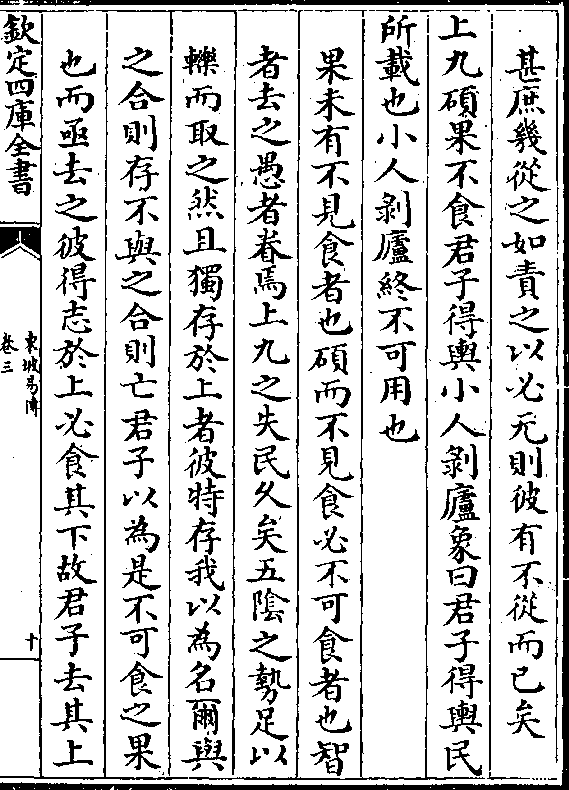 甚庶幾從之如責之以必无則彼有不從而已矣
上九碩果不食君子得輿小人剝廬象曰君子得輿民
所載也小人剝廬終不可用也
果未有不見食者也碩而不見食必不可食者也智
者去之愚者眷焉上九之失民久矣五陰之勢足以
轢而取之然且獨存於上者彼特存我以為名爾與
之合則存不與之合則亡君子以為是不可食之果
也而亟去之彼得志於上必食其下故君子去其上
欽定四庫全書
東坡易傳
卷三
十